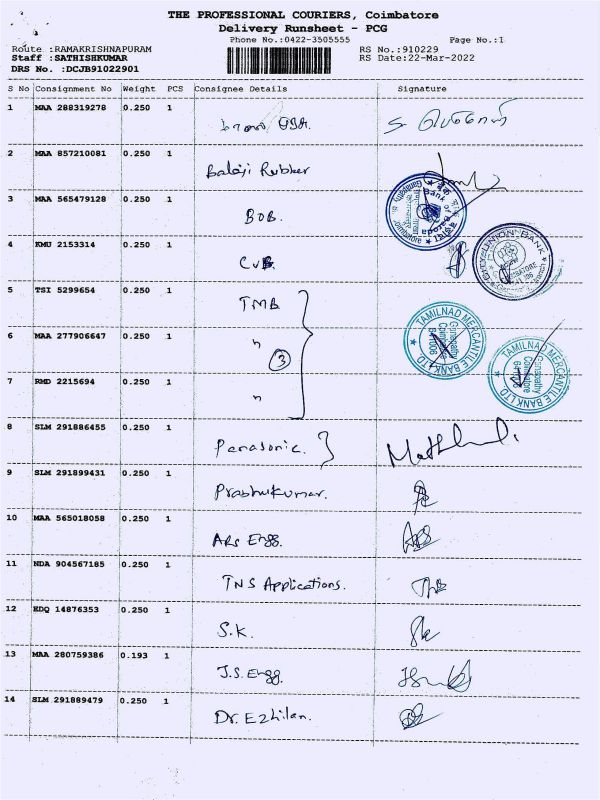 THE PROFESSIONAL COURIERS, Coimbatore
Delivery Runsheet - PCG
Phone No.:0422-3505555 Page No.:1
Route :RAMAKRISHNAPURAM RS No.:910229
Staff :SATHISHKUMAR RS Date:22-Mar-2022
DRS No. :DCJB91022901
S No Consignment No Weight PCS Consignee Details Signature
1 MAA 288319278 0.250 1
2 MAA 857210081 0.250 1 Balaji Rubber
3 MAA 565479128 0.250 1 BOB.
4 KMU 2153314 0.250 1 CUB.
5 TSI 5299654 0.250 1 TMB
6 MAA 277906647 0.250 1 " 3
7 RMD 2215694 0.250 1 "
8 SLM 291886455 0.250 1 Panasonic.
9 SLM 291899431 0.250 1 Prabhukumar.
10 MAA 565018058 0.250 1 ARS Engg.
11 NDA 904567185 0.250 1 TNS Applications.
12 EDQ 14876353 0.250 1 S.K.
13 MAA 280759386 0.193 1 J.S. Engg.
14 SLM 291889479 0.250 1 Dr. Ezhilan.
Bank of Baroda
CITY UNION BANK
TAMILNAD MERCANTILE BANK LTD
Ganapathy
Coimbatore
641006
TAMILNAD MERCANTILE BANK LTD
Ganapathy
Coimbatore